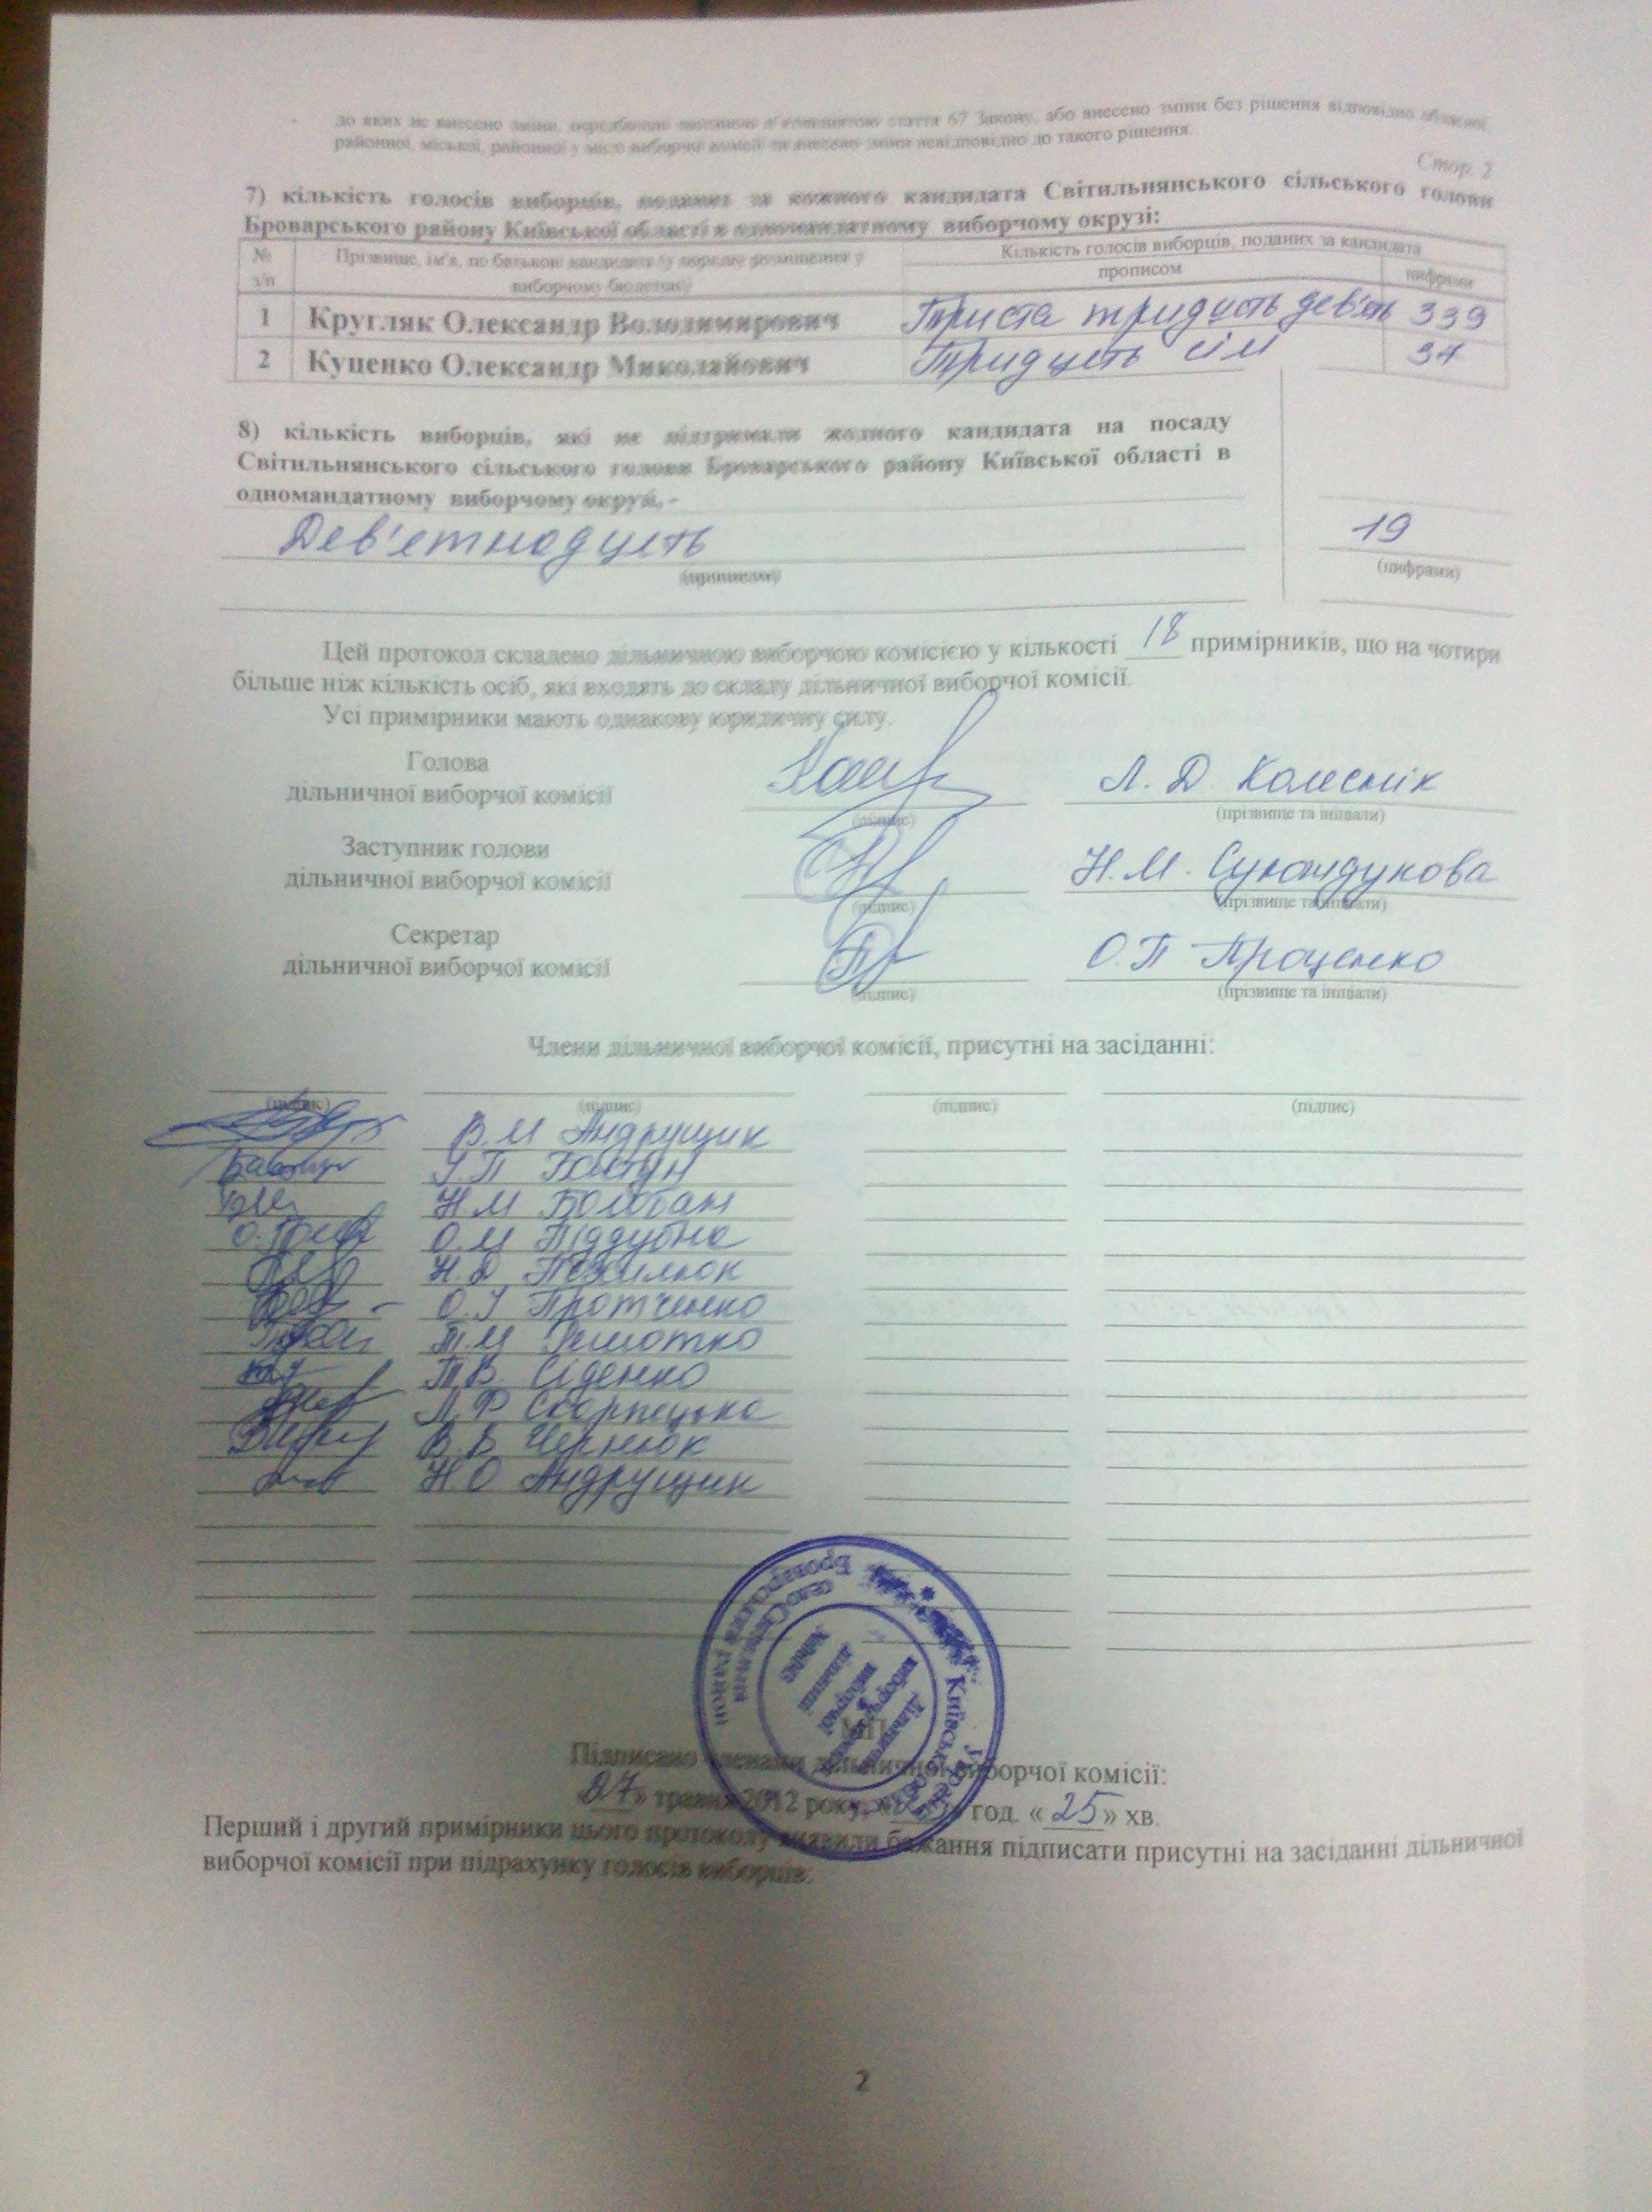 до яких не внесено зміни, стаття 67 Закону, або внесено зміни без рішення відповідно
районної, міської, районної у місті виборчої комісії чи внесено зміни невідповідно до такого рішення.
Стор. 2
7) кількість голосів виборців, поданих за кожного кандидата Світильнянського сільського голови
Броварського району Київської області в одномандатному виборчому окрузі:
№ з/п
Прізвище, ім'я, по батькові кандидата (у порядку розміщення у виборчому бюлетені)
Кількість голосів виборців, поданих за кандидата
прописом
цифрами
1 Кругляк Олександр Володимирович Триста тридцять дев'ять 339
2 Куценко Олександр Миколайович Тридцять сім 37
8) кількість виборців, які не підтримали жодного кандидата на посаду
Світильнянського сільського голови Броварського району Київської області в
одномандатному виборчому окрузі, -
Дев'етнадцеть 19
(прописом) (цифрами)
Цей протокол складено дільничною виборчою комісією у кількості 18 примірників, що на чотири
більше ніж кількість осіб, які входять до складу дільничної виборчої комісії.
Усі примірники мають однакову юридичну силу.
Голова
дільничної виборчої комісії Л. Д. Колеснік
(підпис) (прізвище та ініціали)
Заступник голови
дільничної виборчої комісії Н.М.
(підпис) (прізвище та ініціали)
Секретар
дільничної виборчої комісії О.П Проценко
(підпис) (прізвище та ініціали)
Члени дільничної виборчої комісії, присутні на засіданні:
(підпис) (підпис) (підпис) (підпис)
В.М Андрущик
І П
Н.М Болобан
О.М Піддубна
Н.Д
О.І Протченко
Т.М
Т.В. Сіденко
Л.Ф
В.В Чернюк
Н.О Андрущик
Україна
Київська область
Броварський район
МП
Підписано членами дільничної виборчої комісії:
«27» травня 2012 року, год. «25» хв.
Перший і другий примірники цього протоколу виявили бажання підписати присутні на засіданні дільничної
виборчої комісії при підрахунку голосів виборців:
2